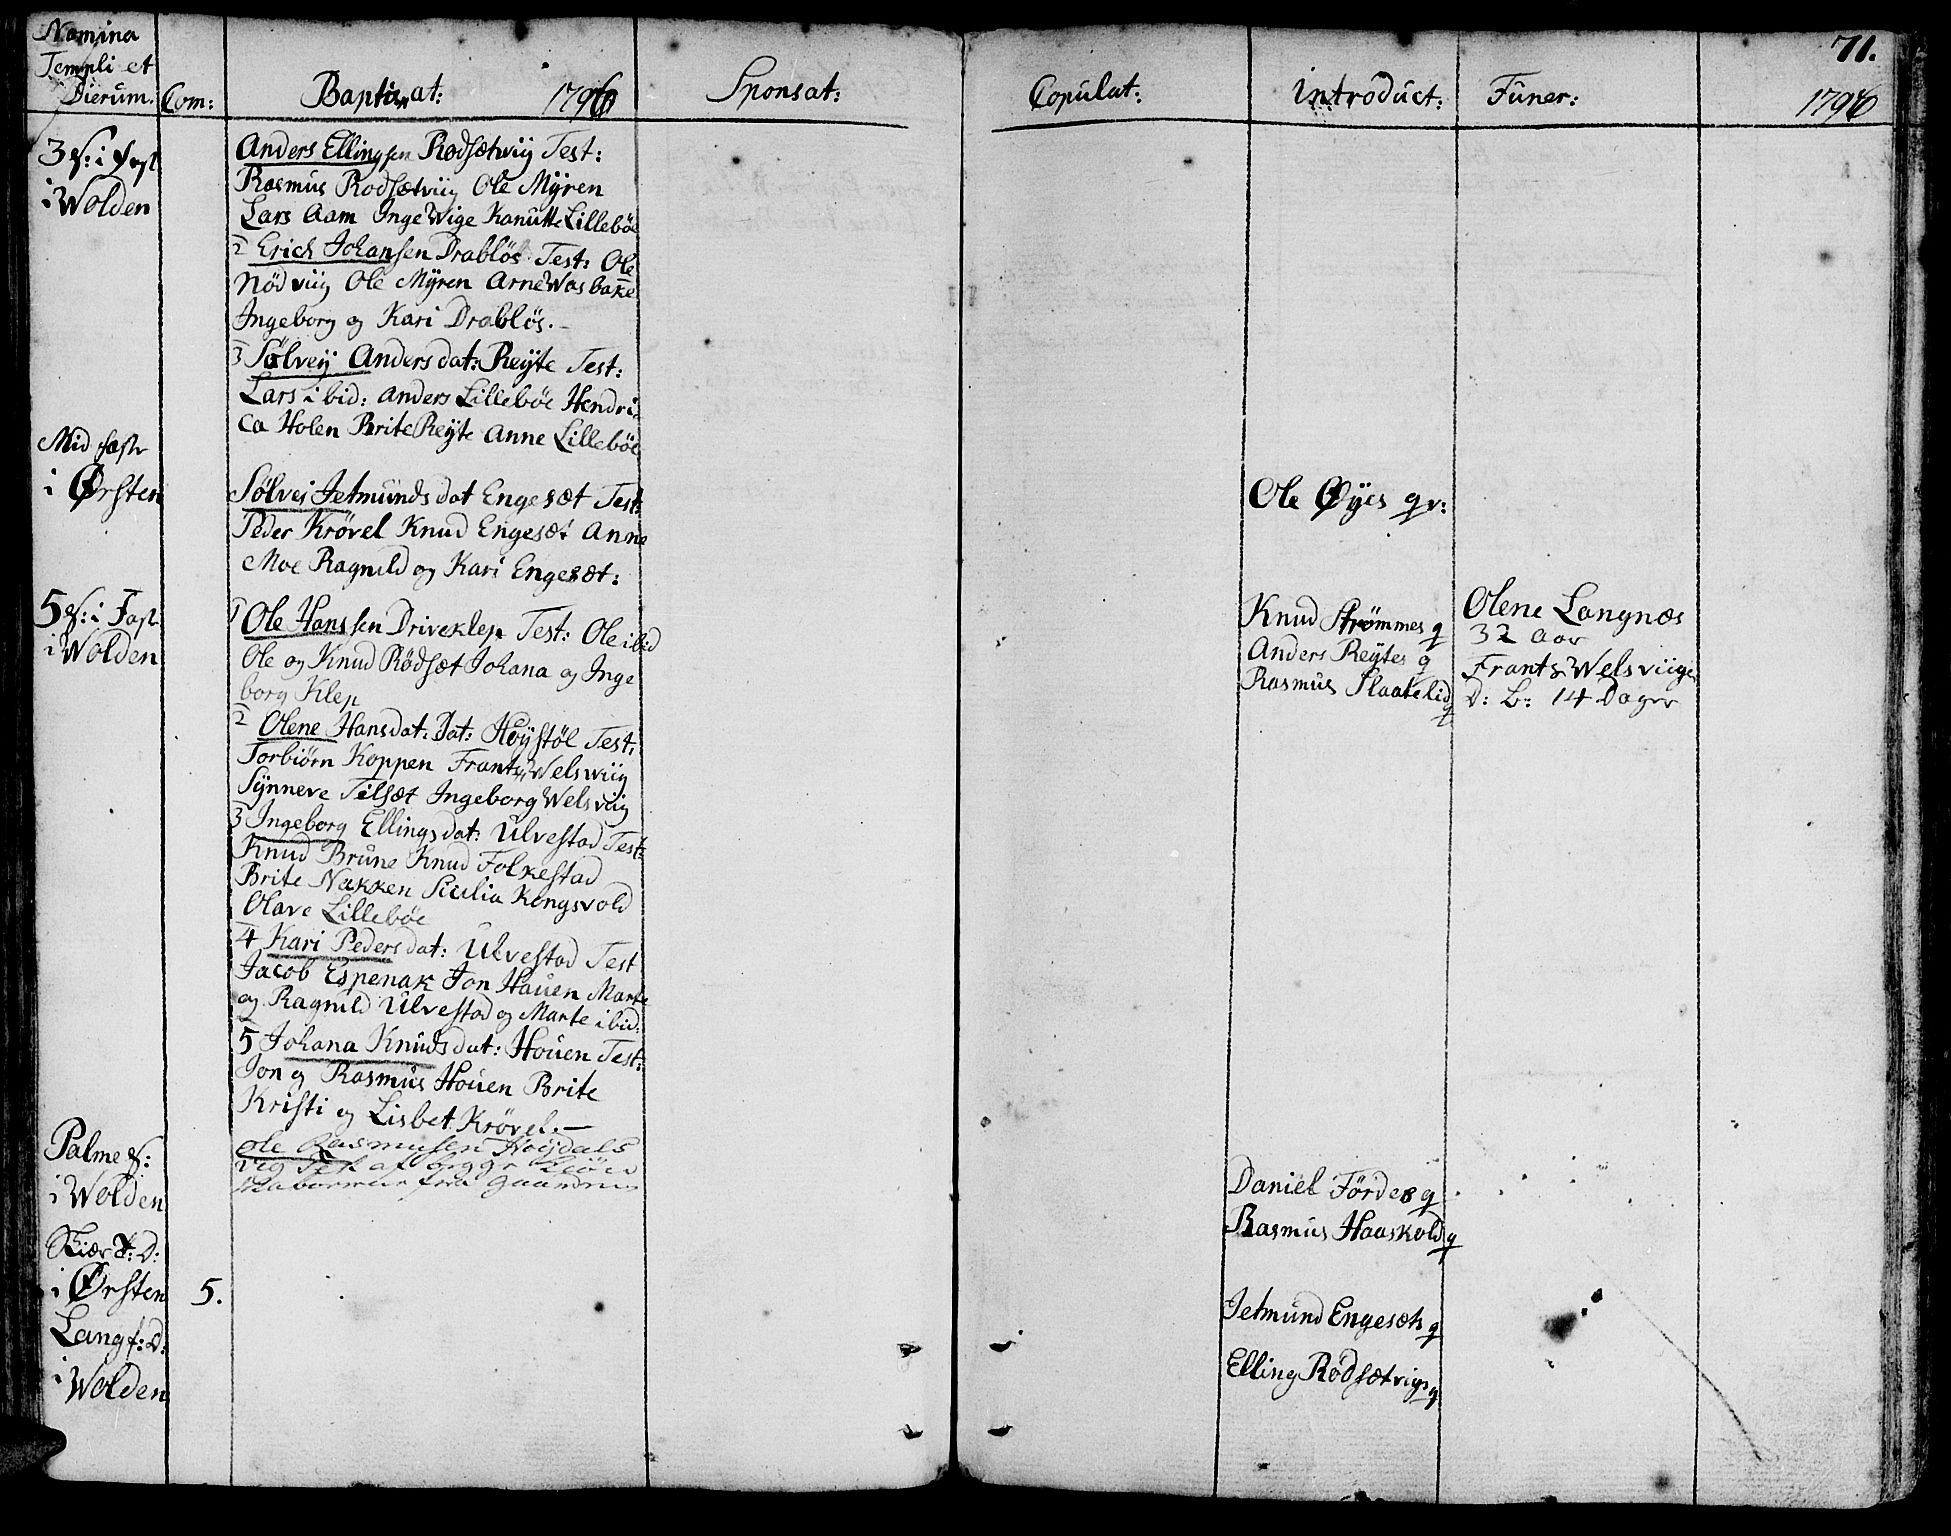 Nomina
Templi et
Dierum.
Com:
Baptizat: 1796
Sponsat:
Copulat:
Introduct:
Funer:
71.
1796
3 S: i Fast
i Wolden
Anders Ellingsen Rødsætviig Test:
Rasmus Rodsætviig Ole Mÿren
Lars Aam Inge Wige Kanutte Lillebøe
2 Erich Johansen Drabløs Test: Ole
Nödviig Ole Mÿren Arne Wasbake
Ingeborg og Kari Drabløs.
3 Sølveÿ Andersdat: Reÿte Test:
Lars ibid: Anders Lillebøe Hendri
ca Holen Brite Reÿte Anne Lillebøe
Mid Faste
i Ørsten
Sølvei Jetmundsdat Engesæt Test:
Peder Krövel Knud Engesæt Anne
Moe Ragnild og Kari Engesæt:
Ole Øÿes qv:
5 S: i Fast
i Wolden
1 Ole Hanssen Driveklep Test: Ole ibid
Ole og Knud Rödsæt Johana og Inge
borg Klep
2 Olene Hansdat: Dat: Høÿstöl Test:
Torbiörn Koppen Frants Welsviig
Sÿnneve Tilsæt Ingeborg Welsviig
3 Ingeborg Ellingsdat: Ulvestad Test:
Knud Brune Knud Folkestad
Brite Nakken Sicilia Kongsvold
Olave Lillebøe
4 Kari Pedersdat: Ulvestad Test
Jacob Espenak Jon Hauen Marte
og Ragnild Ulvestad og Marte ibid:
5 Johana Knudsdat: Houen Test:
Jon og Rasmus Houen Brite
Kristi og Lisbet Krövel.
Knud Strømmes q
Anders Reÿtes q
Rasmus Slaatelid q
Olene Langnæs
32 Aar
Frants Welsviigs
D: B: 14 Dager
Palme S:
i Wolden
Ole Rasmusen Høydals
vig Test af
fra
Daniel Förde q
Rasmus Haaskold q
Skiær T: D:
i Ørsten
5.
Jetmund Engesæts q
Langf: D:
i Wolden
Elling Rødsætvigs q